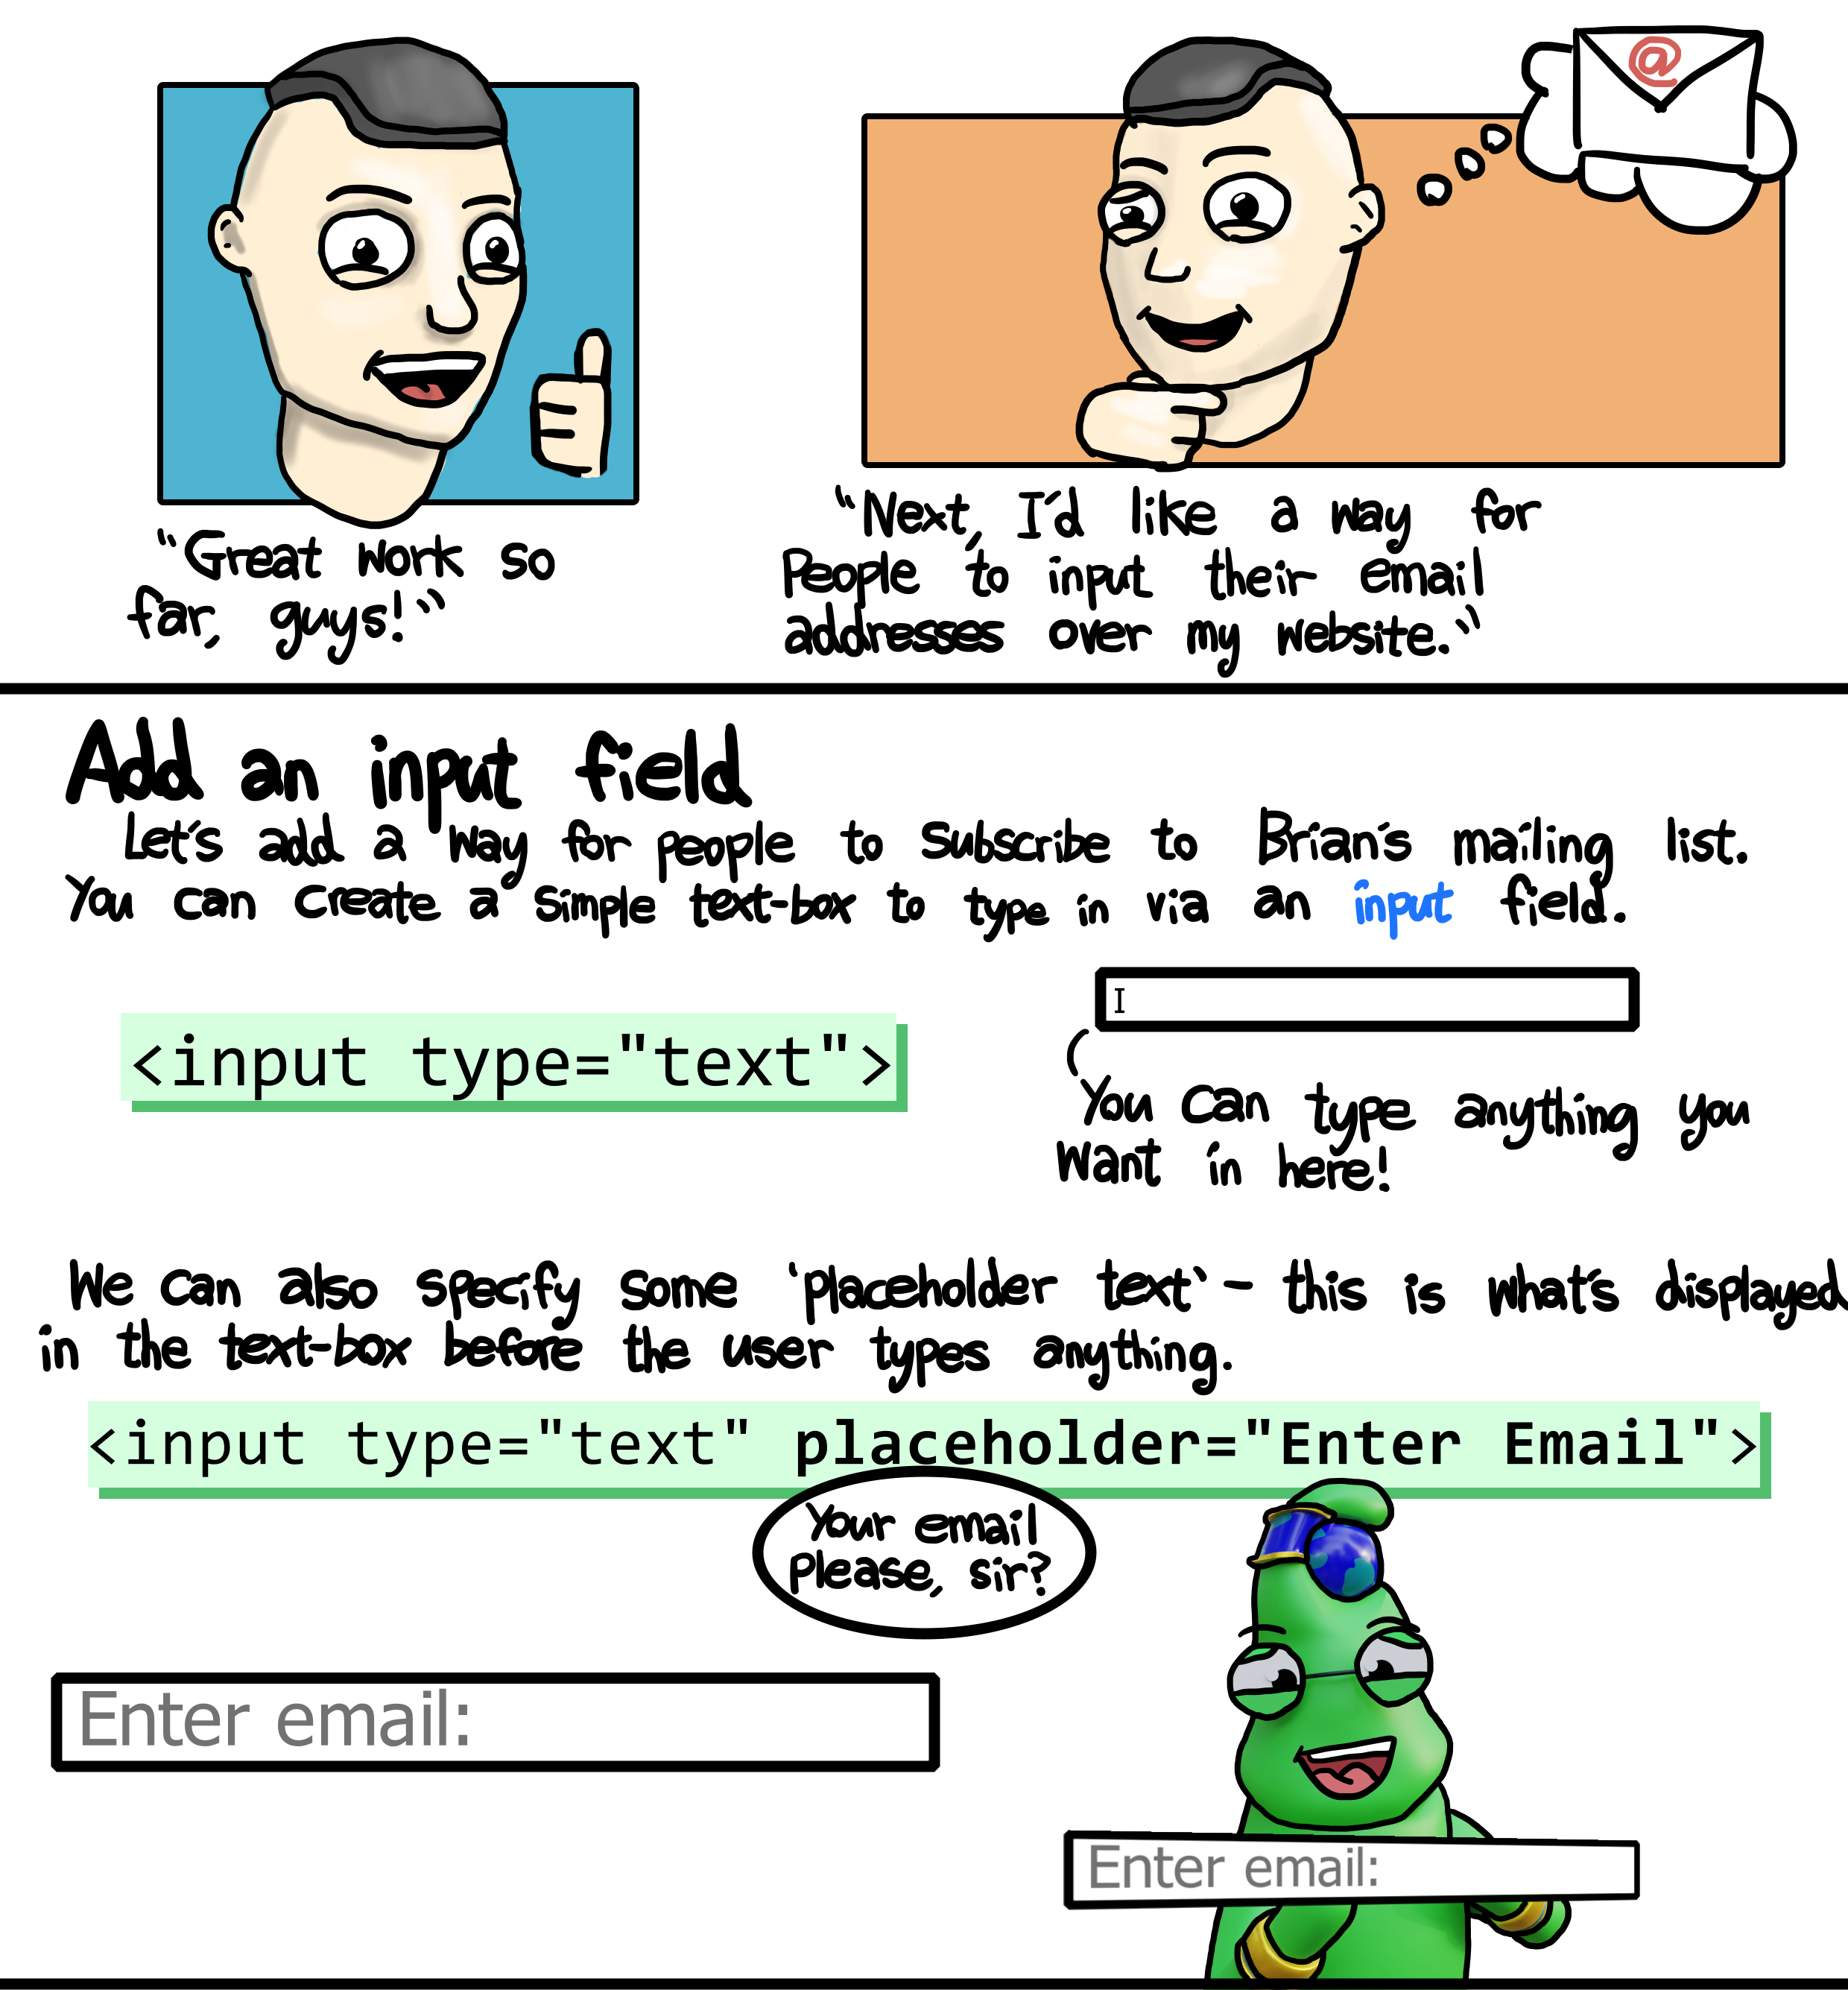 @
"Great work so
far, guys!"
"Next, I'd like a way for
People to input their email
addresses over my website."
Add an input field
Let's add a way for people to subscribe to Brian's mailing list.
You can create a simple text-box to type in via an input field.
<input type="text">
I
You can type anything you
want in here!
We can also specify some 'placeholder text' - this is what's displayed
in the text-box before the user types anything.
<input type="text" placeholder="Enter Email">
Your email
please, sir?
Enter email:
Enter email: